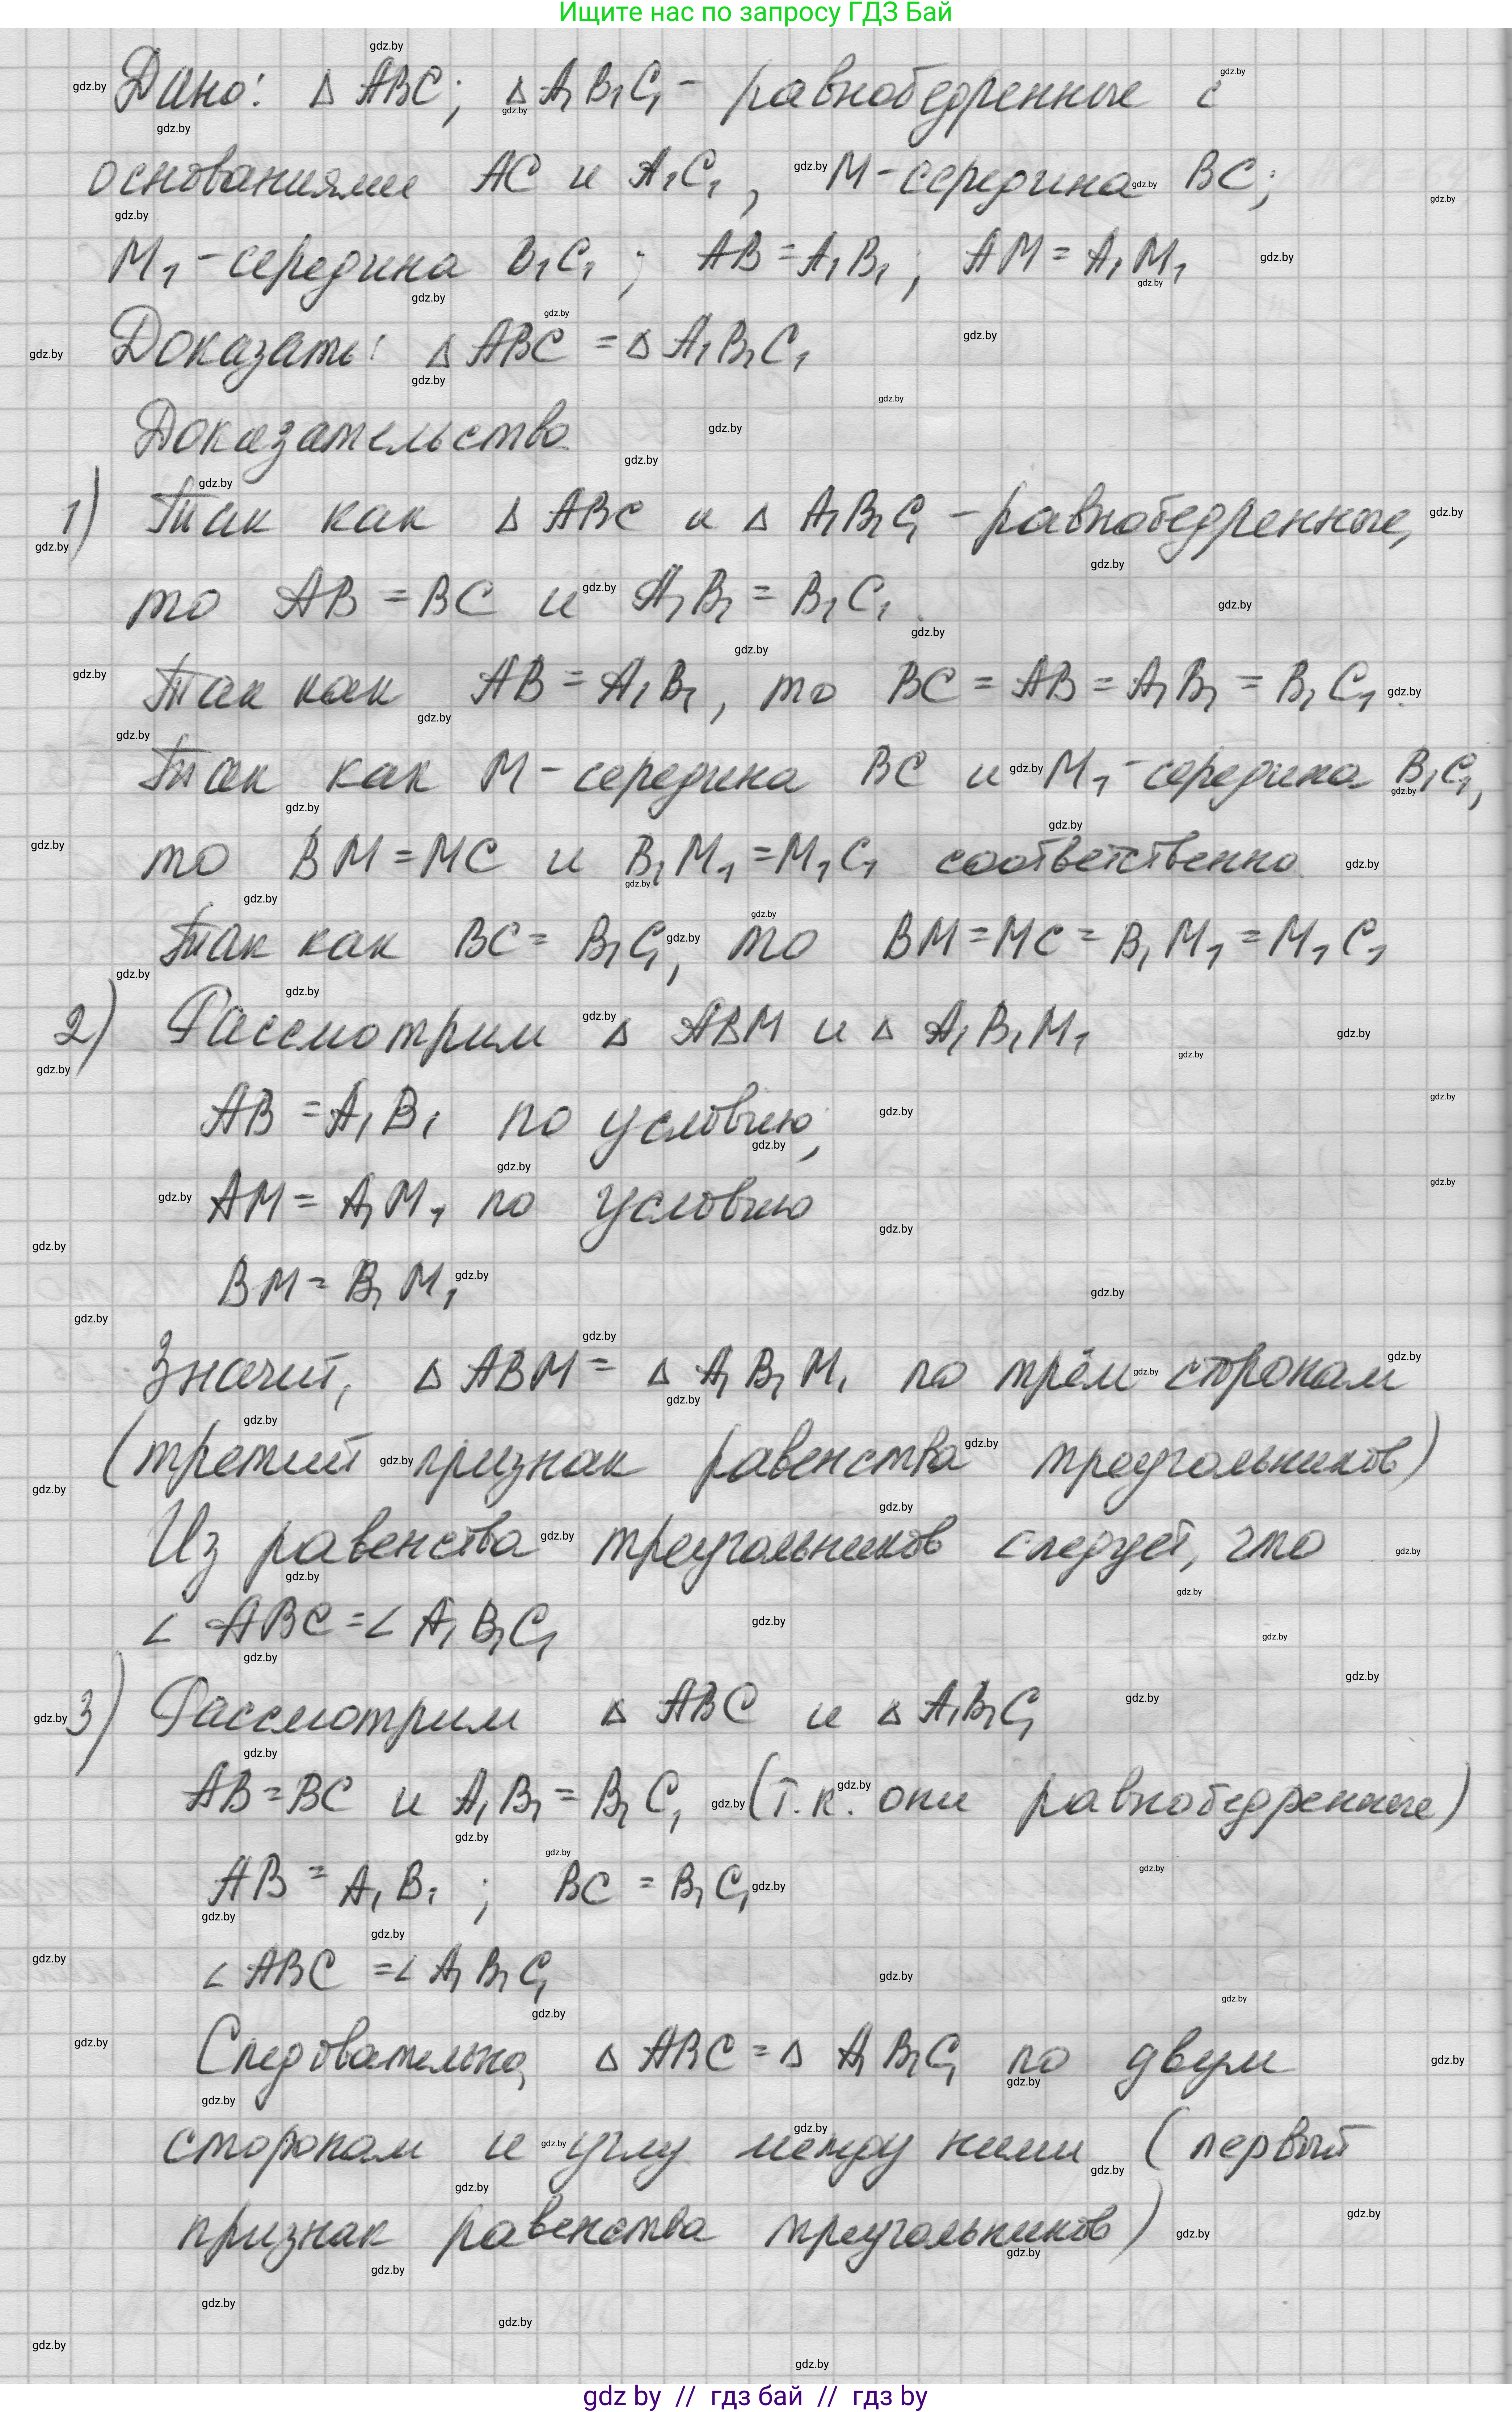 Ищите нас по запросу ГДЗ Бай
Дано: Δ ABC; Δ A₁B₁C₁ - равнобедренные с
основаниями AC и A₁C₁, M-середина BC;
M₁-середина B₁C₁; AB=A₁B₁; AM=A₁M₁
Доказать: Δ ABC = Δ A₁B₁C₁
Доказательство
1) Так как Δ ABC и Δ A₁B₁C₁ - равнобедренные,
то AB = BC и A₁B₁ = B₁C₁.
Так как AB = A₁B₁, то BC = AB = A₁B₁ = B₁C₁.
Так как M-середина BC и M₁-середина B₁C₁,
то BM=MC и B₁M₁=M₁C₁ соответственно
Так как BC= B₁C₁, то BM=MC= B₁M₁=M₁C₁
2) Рассмотрим Δ ABM и Δ A₁B₁M₁
AB = A₁B₁ по условию,
AM = A₁M₁ по условию
BM = B₁M₁
Значит, Δ ABM = Δ A₁B₁M₁ по трём сторонам
(третий признак равенства треугольников)
Из равенства треугольников следует, что
∠ ABC = ∠ A₁B₁C₁
3) Рассмотрим Δ ABC и Δ A₁B₁C₁
AB=BC и A₁B₁= B₁C₁ (т.к. они равнобедренные)
AB = A₁B₁; BC = B₁C₁
∠ ABC = ∠ A₁B₁C₁
Следовательно, Δ ABC = Δ A₁B₁C₁ по двум
сторонам и углу между ними (первый
признак равенства треугольников)
gdz by // гдз бай // гдз by